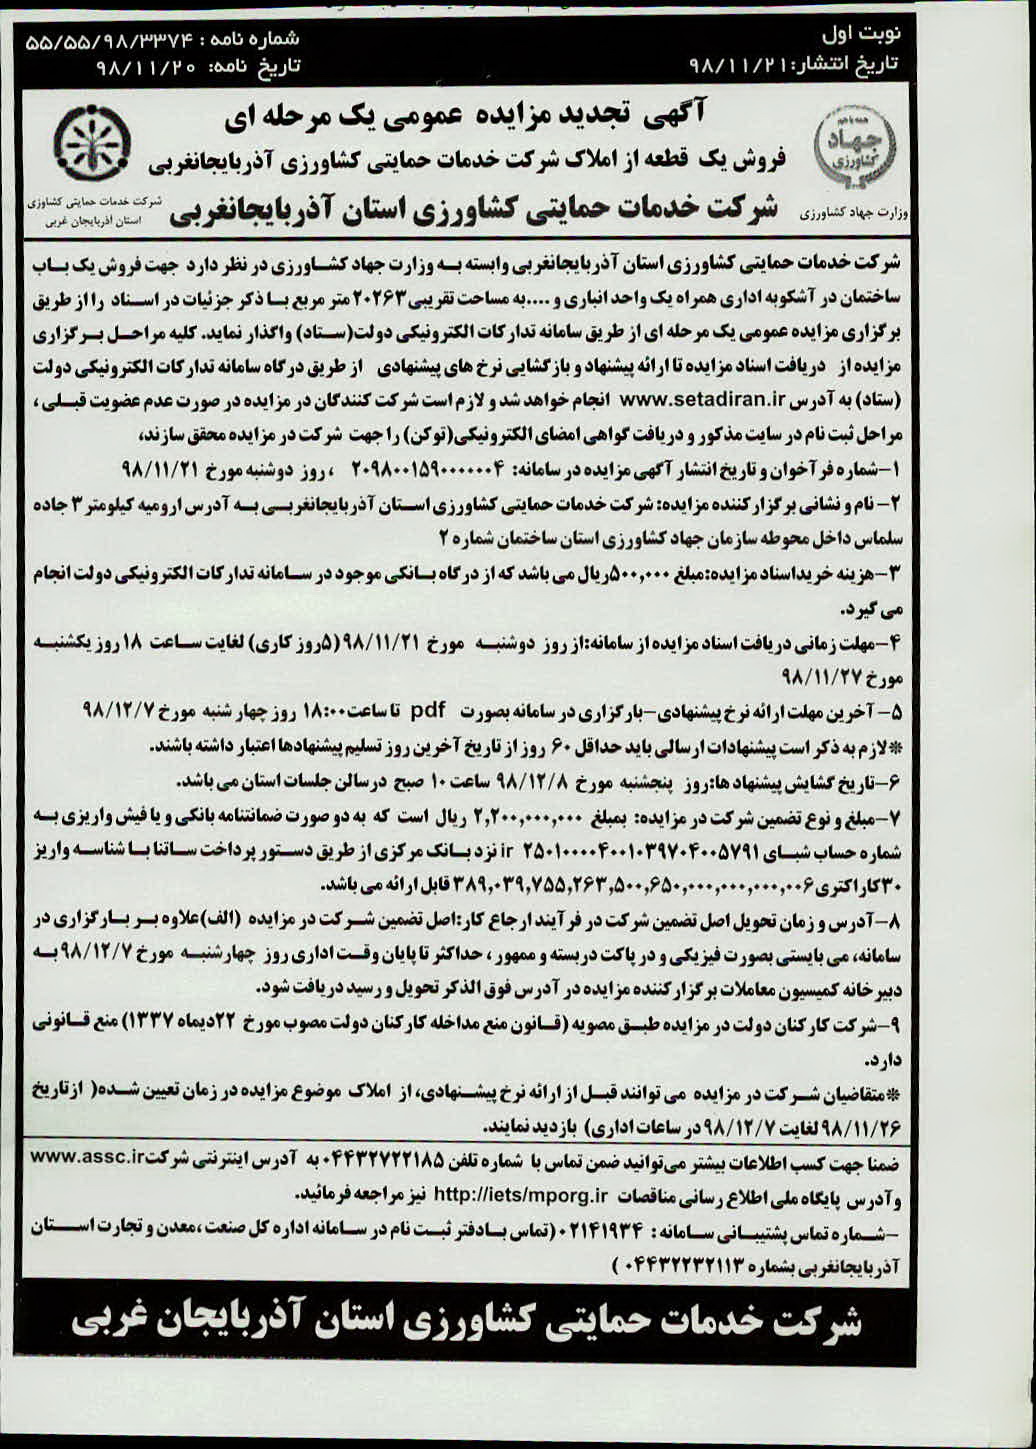 نوبت اول
تاریخ انتشار:۹۸/۱۱/۲۱
شماره نامه : ۵۵/۵۵/۹۸/۳۳۷۴
تاریخ نامه: ۹۸/۱۱/۲۰
آگهی تجدید مزایده عمومی یک مرحله ای
فروش یک قطعه از املاک شرکت خدمات حمایتی کشاورزی آذربایجانغربی
شرکت خدمات حمایتی کشاورزی استان آذربایجانغربی
همه با هم
جهاد
کشاورزی
وزارت جهاد کشاورزی
شرکت خدمات حمایتی کشاورزی
استان آذربایجان غربی
شرکت خدمات حمایتی کشاورزی استان آذربایجانغربی وابسته به وزارت جهاد کشاورزی در نظر دارد جهت فروش یک باب
ساختمان در آشکوبه اداری همراه یک واحد انباری و ....به مساحت تقریبی ۲۰۲۶۳ متر مربع با ذکر جزئیات در اسناد را از طریق
برگزاری مزایده عمومی یک مرحله ای از طریق سامانه تدارکات الکترونیکی دولت(ستاد) واگذار نماید. کلیه مراحل برگزاری
مزایده از دریافت اسناد مزایده تا ارائه پیشنهاد و بازگشایی نرخ های پیشنهادی از طریق درگاه سامانه تدارکات الکترونیکی دولت
(ستاد) به آدرس www.setadiran.ir انجام خواهد شد و لازم است شرکت کنندگان در مزایده در صورت عدم عضویت قبلی ،
مراحل ثبت نام در سایت مذکور و دریافت گواهی امضای الکترونیکی(توکن) را جهت شرکت در مزایده محقق سازند،
۱-شماره فرآخوان و تاریخ انتشار آگهی مزایده در سامانه: ۲۰۹۸۰۰۱۵۹۰۰۰۰۰۰۴ ، روز دوشنبه مورخ ۹۸/۱۱/۲۱
۲- نام و نشانی برگزار کننده مزایده: شرکت خدمات حمایتی کشاورزی استان آذربایجانغربی به آدرس ارومیه کیلومتر ۳ جاده
سلماس داخل محوطه سازمان جهاد کشاورزی استان ساختمان شماره ۲
۳-هزینه خرید اسناد مزایده:مبلغ ۵۰۰,۰۰۰ریال می باشد که از درگاه بانکی موجود در سامانه تدارکات الکترونیکی دولت انجام
می گیرد.
۴-مهلت زمانی دریافت اسناد مزایده از سامانه:از روز دوشنبه مورخ ۹۸/۱۱/۲۱(۵روز کاری) لغایت ساعت ۱۸ روز یکشنبه
مورخ ۹۸/۱۱/۲۷
۵- آخرین مهلت ارائه نرخ پیشنهادی-بارگزاری در سامانه بصورت pdf تا ساعت۱۸:۰۰ روز چهار شنبه مورخ ۹۸/۱۲/۷
*لازم به ذکر است پیشنهادات ارسالی باید حداقل ۶۰ روز از تاریخ آخرین روز تسلیم پیشنهادها اعتبار داشته باشند.
۶-تاریخ گشایش پیشنهاد ها:روز پنجشنبه مورخ ۹۸/۱۲/۸ ساعت ۱۰ صبح در سالن جلسات استان می باشد.
۷-مبلغ و نوع تضمین شرکت در مزایده: بمبلغ ۲,۲۰۰,۰۰۰,۰۰۰ ریال است که به دو صورت ضمانتنامه بانکی و یا فیش واریزی به
شماره حساب شبای ir ۲۵۰۱۰۰۰۰۴۰۰۱۰۳۹۷۰۴۰۰۵۷۹۱ نزد بانک مرکزی از طریق دستور پرداخت ساتنا با شناسه واریز
۳۰کاراکتری۳۸۹,۰۳۹,۷۵۵,۲۶۳,۵۰۰,۶۵۰,۰۰۰,۰۰۰,۰۰۰,۰۰۶ قابل ارائه می باشد.
۸-آدرس و زمان تحویل اصل تضمین شرکت در فرآیند ارجاع کار:اصل تضمین شرکت در مزایده (الف)علاوه بر بارگزاری در
سامانه، می بایستی بصورت فیزیکی و در پاکت دربسته و ممهور ، حداکثر تا پایان وقت اداری روز چهارشنبه مورخ ۹۸/۱۲/۷ به
دبیرخانه کمیسیون معاملات برگزار کننده مزایده در آدرس فوق الذکر تحویل و رسید دریافت شود.
۹-شرکت کارکنان دولت در مزایده طبق مصوبه (قانون منع مداخله کارکنان دولت مصوب مورخ ۲۲دیماه ۱۳۳۷) منع قانونی
دارد.
*متقاضیان شرکت در مزایده می توانند قبل از ارائه نرخ پیشنهادی، از املاک موضوع مزایده در زمان تعیین شده( ازتاریخ
۹۸/۱۱/۲۶ لغایت ۹۸/۱۲/۷ در ساعات اداری) بازدید نمایند.
ضمنا جهت کسب اطلاعات بیشتر می‌توانید ضمن تماس با شماره تلفن ۰۴۴۳۲۷۲۲۱۸۵ به آدرس اینترنتی شرکت www.assc.ir
و آدرس پایگاه ملی اطلاع رسانی مناقصات http://iets/mporg.ir نیز مراجعه فرمائید.
-شماره تماس پشتیبانی سامانه : ۰۲۱۴۱۹۳۴ (تماس با دفتر ثبت نام در سامانه اداره کل صنعت ،معدن و تجارت استان
آذربایجانغربی بشماره ۰۴۴۳۲۲۳۲۱۱۳ )
شرکت خدمات حمایتی کشاورزی استان آذربایجان غربی